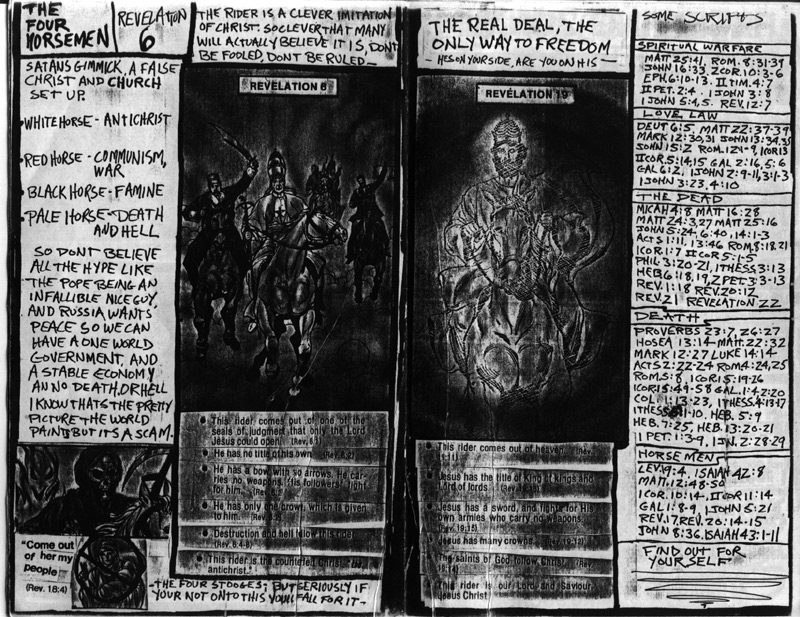 THE
FOUR
HORSEMEN
REVELATION
6
SATANS GIMMICK, A FALSE
CHRIST AND CHURCH
SET UP.
WHITE HORSE - ANTICHRIST
RED HORSE - COMMUNISM,
WAR
BLACK HORSE - FAMINE
PALE HORSE - DEATH
AND HELL
SO DONT BELIEVE
ALL THE HYPE LIKE
THE POPE BEING AN
INFALLIBLE NICE GUY,
AND RUSSIA WANTS
PEACE SO WE CAN
HAVE A ONE WORLD
GOVERNMENT, AND
A STABLE ECONOMY
AN NO DEATH, OR HELL
I KNOW THATS THE PRETTY
PICTURE THE WORLD
PAINTS BUT ITS A SCAM.
"Come out
of her my
people"
(Rev. 18:4)
THE RIDER IS A CLEVER IMITATION
OF CHRIST. SO CLEVER THAT MANY
WILL ACTUALLY BELIEVE IT IS, DONT
BE FOOLED, DONT BE RULED -
REVELATION 6
• This rider comes out of one of the
seals of judgment that only the Lord
Jesus could open. (Rev. 6:1)
• He has no title of his own. (Rev. 6:2)
• He has a bow with no arrows. He car-
ries no weapons, "his followers" fight
for him. (Rev. 6:2)
• He has only one crown, which is given
to him. (Rev. 6:2)
• Destruction and hell follow this rider.
(Rev. 6:4-8)
• This rider is the counterfeit Christ - the
antichrist.
- THE FOUR STOOGES; BUT SERIOUSLY IF
YOUR NOT ONTO THIS YOULL FALL FOR IT -
THE REAL DEAL, THE
ONLY WAY TO FREEDOM
- HES ON YOUR SIDE, ARE YOU ON HIS -
REVELATION 19
• This rider comes out of heaven. (Rev.
19:11)
• Jesus has the title of King of kings and
Lord of lords. (Rev. 19:16)
• Jesus has a sword, and fights for His
own armies who carry no weapons.
(Rev. 19:15)
• Jesus has many crowns. (Rev. 19:12)
• The saints of God follow Christ. (Rev.
19:14)
• This rider is our Lord and Saviour
Jesus Christ
SOME SCRIPTS
SPIRITUAL WARFARE
MATT 25:41, ROM. 8:31-39
JOHN 16:33, 2COR. 10:3-6
EPH. 6:10-13. II TIM. 4:7
II PET. 2:4. I JOHN 3:8
I JOHN 5:4,5. REV. 12:7
LOVE, LAW
DEUT 6:5, MATT 22:37-39
MARK 12:30,31 JOHN 13:34,35
JOHN 15:12 ROM. 12:1-9, ICOR 13
II COR. 5:14,15 GAL 2:16, 5:6
GAL 6:2, I JOHN 2:9-11, 3:1-3
I JOHN 3:23, 4:10
THE DEAD
MICAH 4:8 MATT 16:28
MATT 24:3,27 MATT 25:16
JOHN 5:24, 6:40, 14:1-3
ACTS 1:11, 13:46 ROM. 8:18,21
ICOR. 1:7 II COR 5:1-5
PHIL 3:20-21, ITHESS 3:13
HEB. 6:18,19, 2 PET 3:3-13
REV. 1:18 REV. 20:12
REV. 21 REVELATION 22
DEATH
PROVERBS 23:7, 26:27
HOSEA 13:14 MATT. 22:32
MARK 12:27 LUKE 14:14
ACTS 2:22-24 ROM 4:24,25
ROM. 5:8, ICOR 15:19-26
ICOR 15:49-58 GAL. 1:4 2:20
COL. 1:13,23, ITHESS. 4:13-17
ITHESS 1:10. HEB. 5:9
HEB. 7:25, HEB. 13:20-21
I PET. 1:3-9, IJN. 2:28-29
HORSEMEN
LEV. 19:4, ISAIAH 42:8
MATT. 12:48-50
ICOR. 10:14, II COR 11:14
GAL 1:8-9, I JOHN 5:21
REV. 17, REV. 20:14-15
JOHN 8:36, ISAIAH 43:1-11
FIND OUT FOR
YOURSELF